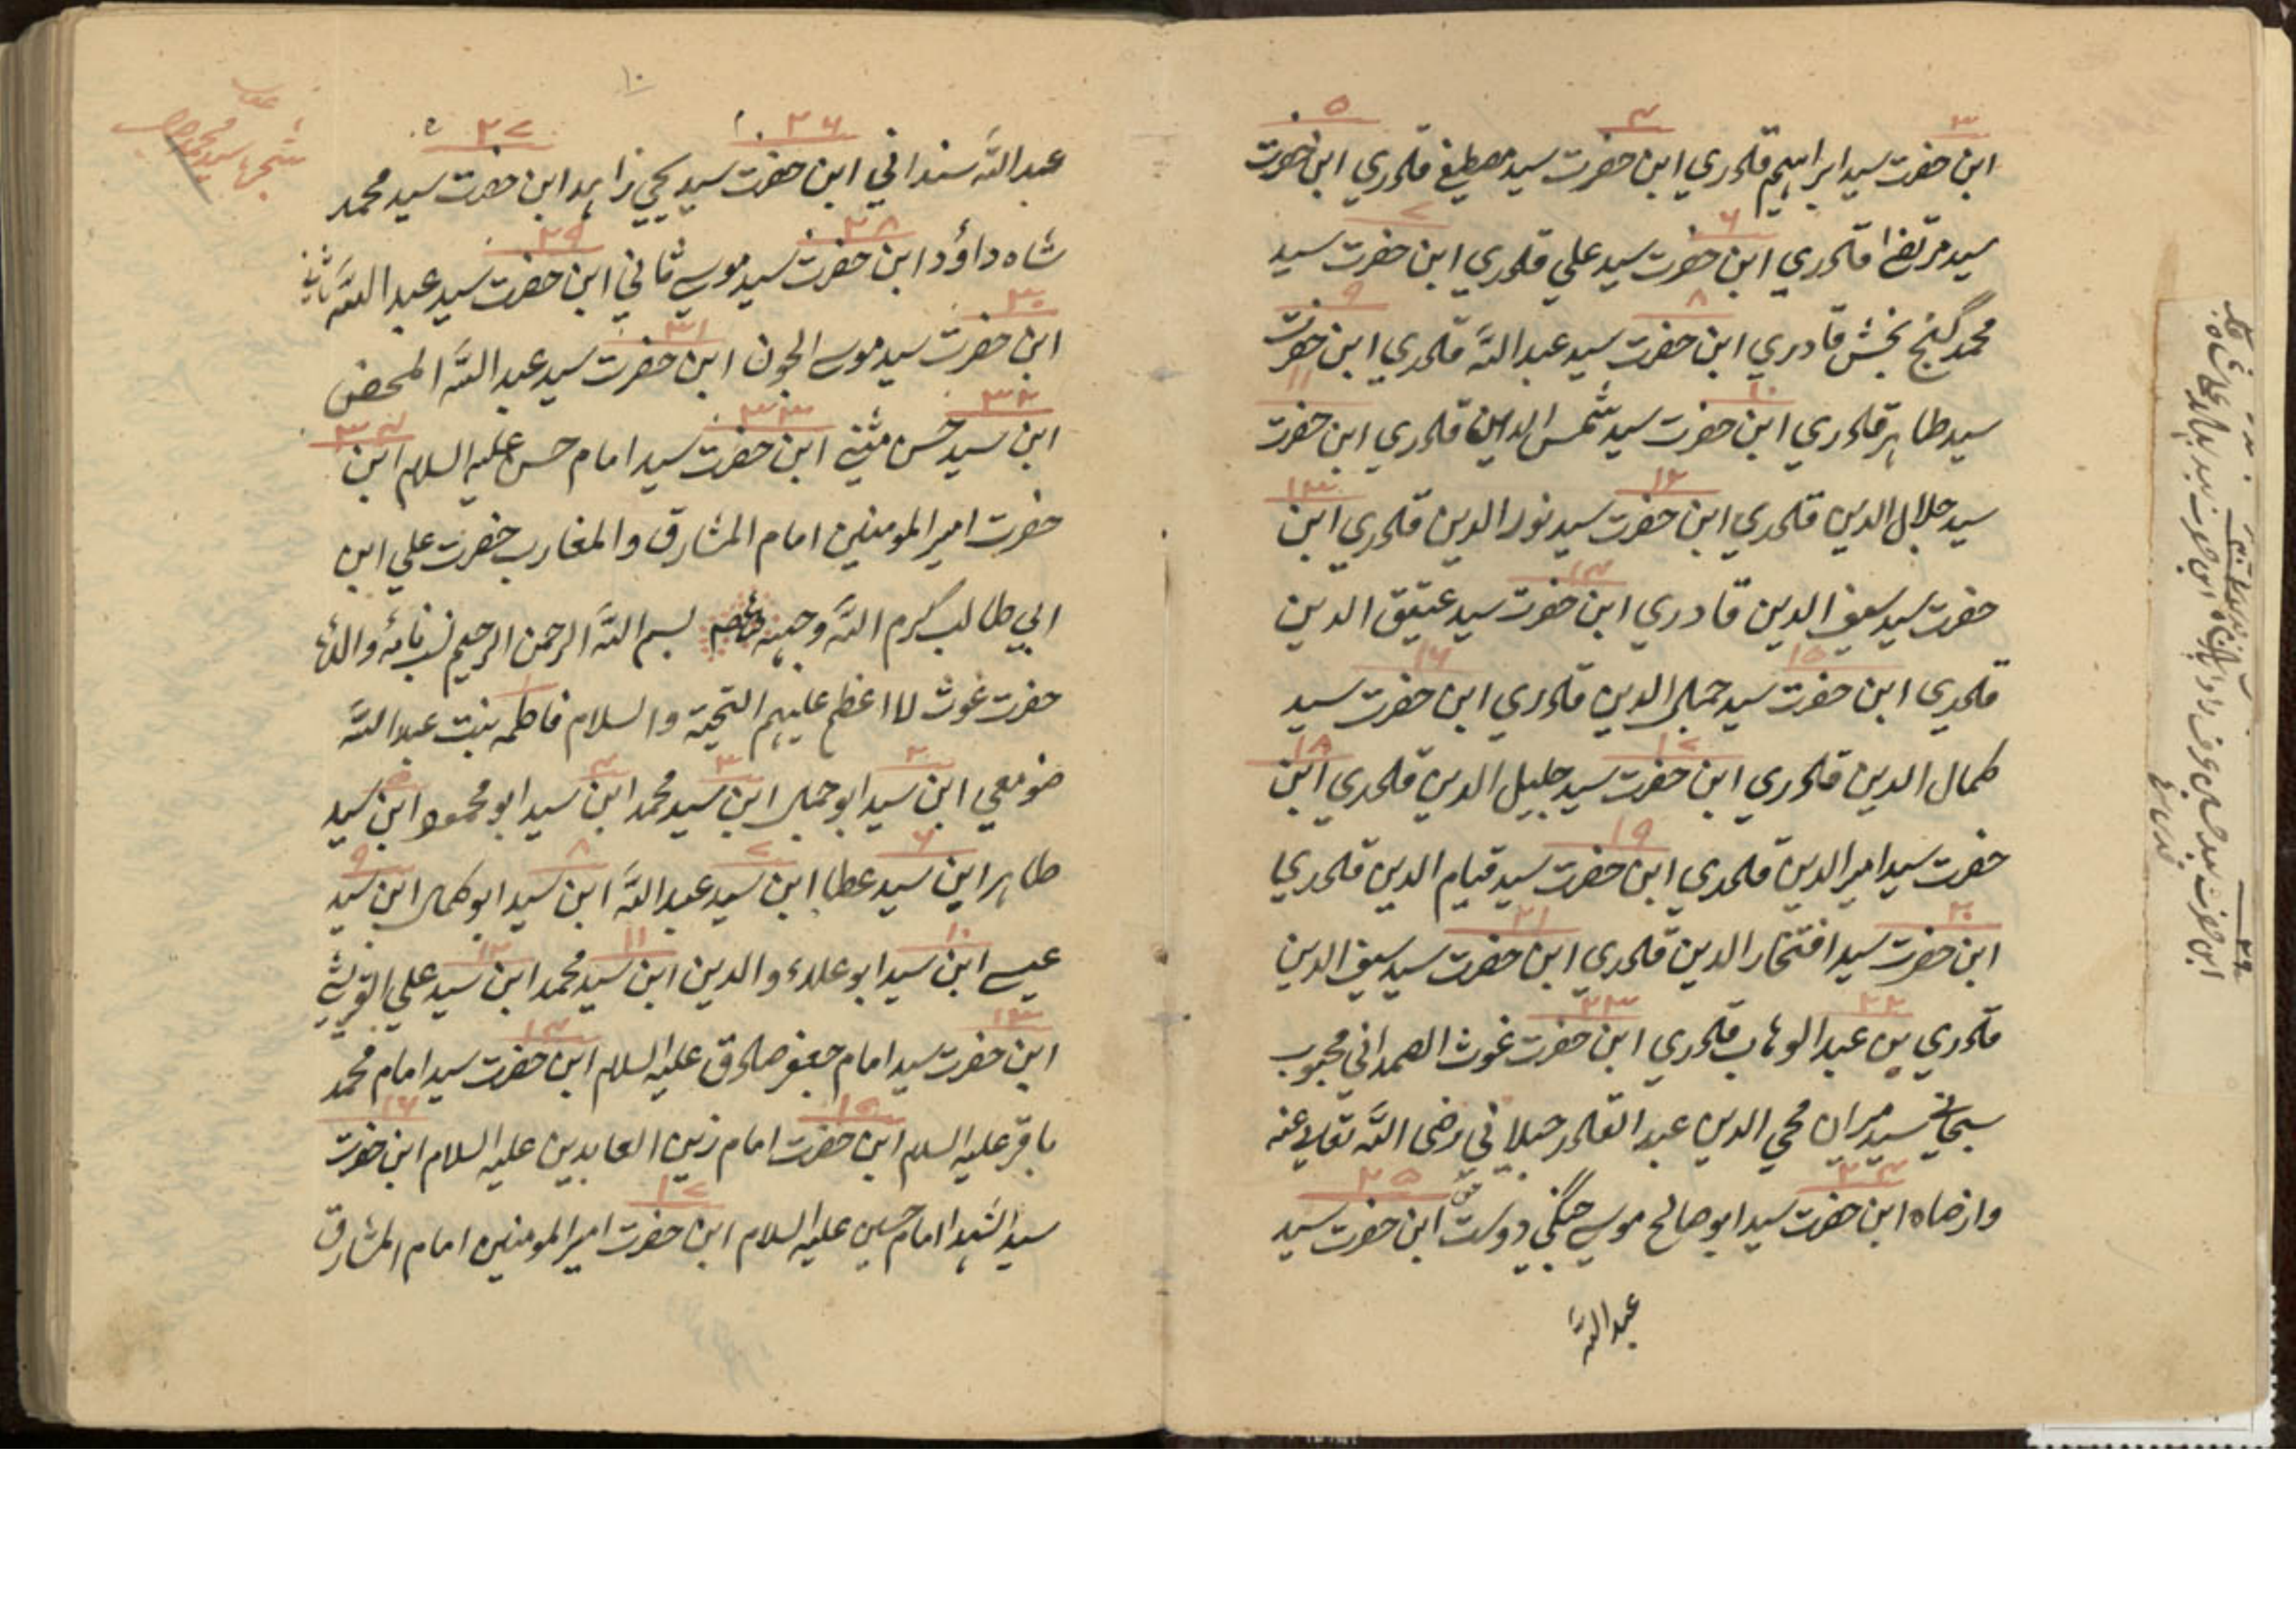 ۳ ۴ ۵
ابن حضرت سید ابراهیم قادري ابن حضرت سید مصطفے قادري ابن حضرت
۶ ۷
سید مرتضا قادري ابن حضرت سید علي قادري ابن حضرت سید
۸ ۹
محمد گنج بخش قادري ابن حضرت سید عبد اللّه قادري ابن حضرت
۱۰ ۱۱
سید طاهر قادري ابن حضرت سید شمس الدین قادري ابن حضرت
۱۲ ۱۳
سید جلال الدین قادري ابن حضرت سید نور الدین قادري ابن
۱۴
حضرت سید سیف الدین قادري ابن حضرت سید عتیق الدین
۱۵ ۱۶
قادري ابن حضرت سید جمال الدین قادري ابن حضرت سید
۱۷ ۱۸
کمال الدین قادري ابن حضرت سید جلیل الدین قادري ابن
۱۹
حضرت سید امیر الدین قادري ابن حضرت سید قیام الدین قادري
۲۰ ۲۱
ابن حضرت سید افتخار الدین قادري ابن حضرت سید سیف الدین
۲۲ ۲۳
قادري بن عبد الوهاب قادري ابن حضرت غوث الصمداني محبوب
سبحاني سید میران محي الدین عبد القادر جیلاني رضی اللّه تعالے عنه
۲۴ ۲۵
وارضاه ابن حضرت سید ابو صالح موسے جنگي دوست ابن حضرت سید
عبد اللّه
۱۰
۲۶ ۲۷
عبد اللّه ابن حضرت سید یحیي زاهد ابن حضرت سید محمد
۲۸ ۲۹
شاه داؤد ابن حضرت سید موسے ثاني ابن حضرت سید عبد اللّه ثاني
۳۰ ۳۱
ابن حضرت سید موسے الجون ابن حضرت سید عبد اللّه المحض
۳۲ ۳۳ ۳۴
ابن سید حسن مثنے ابن حضرت سید امام حسن علیه السلام ابن
حضرت امیر المومنین امام المشارق والمغارب حضرت علي ابن
ابي طالب کرم اللّه وجهه بسم اللّه الرحمن الرحیم نسب نامهٔ والدهٔ
۱
حضرت غوث الاعظم علیهم التحیة والسلام فاطمه بنت عبد اللّه
۲ ۳ ۴ ۵
صومعي ابن سید ابو جمال ابن سید محمد ابن سید ابو محمود ابن سید
۶ ۷ ۸ ۹
طاهر ابن سید عطا ابن سید عبد اللّه ابن سید ابو کمال ابن سید
۱۰ ۱۱ ۱۲
عیسے ابن سید ابو علاء والدین ابن سید محمد ابن سید علي
۱۳ ۱۴
ابن حضرت سید امام جعفر صادق علیه السلام ابن حضرت سید امام محمد
۱۵ ۱۶
باقر علیه السلم ابن حضرت امام زین العابدین علیه السلام ابن حضرت
۱۷
سید الشهدا امام حسین علیه السلام ابن حضرت امیر المومنین امام المشارق